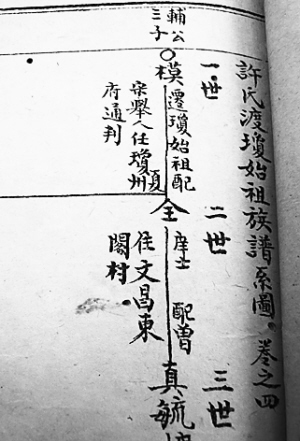 許氏渡瓊始祖族譜系圖 卷之四
一世
二世
三世
輔公
三子
模
遷瓊始祖配
宋舉人任瓊州
府通判
全
庠士 配曾
住文昌東
閣村
真毓